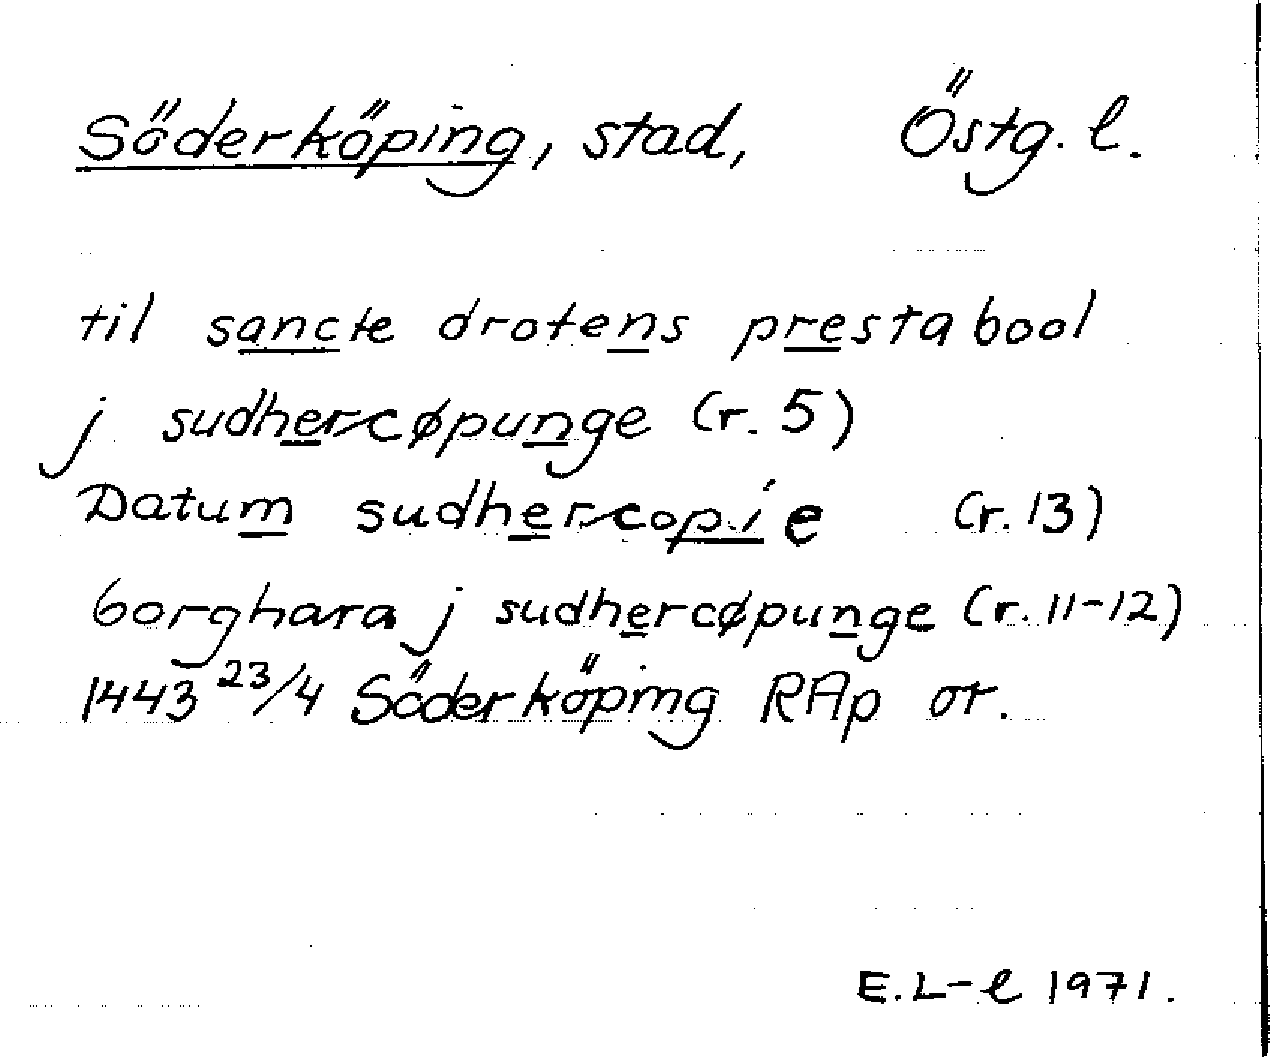 Söderköping, stad, Östg. l.
til sancte drotens prestabool
j sudhercøpunge (r. 5)
Datum sudhercopie (r. 13)
borghara j sudhercøpunge (r. 11-12)
1443 23/4 Söderköping RAp or.
E. L-l 1971.